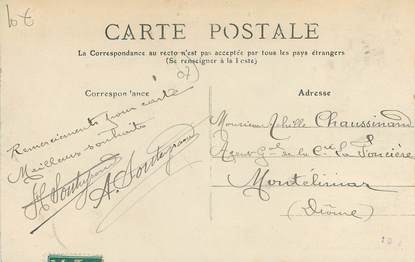 10 €
CARTE POSTALE
La Correspondance au recto n'est pas acceptée par tous les pays étrangers
(Se renseigner à la Poste)
07)
Correspondance
Adresse
Remerciements pour carte
Meilleurs souhaits
A.
Monsieur Achille Chaussinand
Agent Gal de la Cie La Foncière
Montélimar
(Drôme)